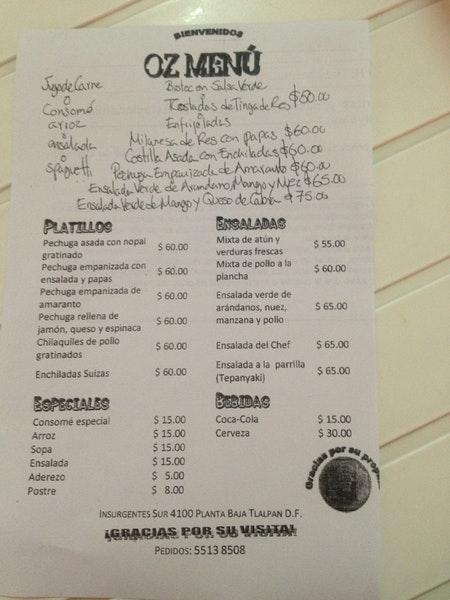 BIENVENIDOS
OZ MENÚ
Jugo de Carne
o
Consomé
arroz
o
ensalada
o
spaguetti
Bistec en Salsa Verde
o
Tostadas de Tinga de Res $50.00
o
Enfrijoladas
Milanesa de Res con papas $60.00
Costilla Asada con Enchiladas $60.00
Pechuga Empanizada de Amaranto $60.00
Ensalada Verde de Arandano, Mango y Nuez $65.00
Ensalada Verde de Mango y Queso de Cabra $75.00
PLATILLOS
Pechuga asada con nopal gratinado $ 60.00
Pechuga empanizada con ensalada y papas $ 60.00
Pechuga empanizada de amaranto $ 60.00
Pechuga rellena de jamón, queso y espinaca $ 60.00
Chilaquiles de pollo gratinados $ 60.00
Enchiladas Suizas $ 60.00
ENSALADAS
Mixta de atún y verduras frescas $ 55.00
Mixta de pollo a la plancha $ 60.00
Ensalada verde de arándanos, nuez, manzana y pollo $ 65.00
Ensalada del Chef $ 65.00
Ensalada a la parrilla (Tepanyaki) $ 65.00
ESPECIALES
Consomé especial $ 15.00
Arroz $ 15.00
Sopa $ 15.00
Ensalada $ 15.00
Aderezo $ 5.00
Postre $ 8.00
BEBIDAS
Coca-Cola $ 15.00
Cerveza $ 30.00
Gracias por su prop
INSURGENTES SUR 4100 PLANTA BAJA TLALPAN D.F.
¡GRACIAS POR SU VISITA!
PEDIDOS: 5513 8508